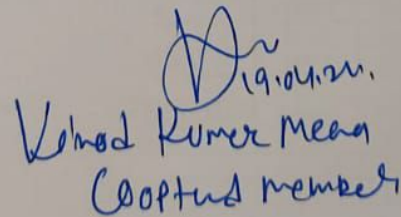 19.04.24.
Vinod Kumer Meena
Cooptud member